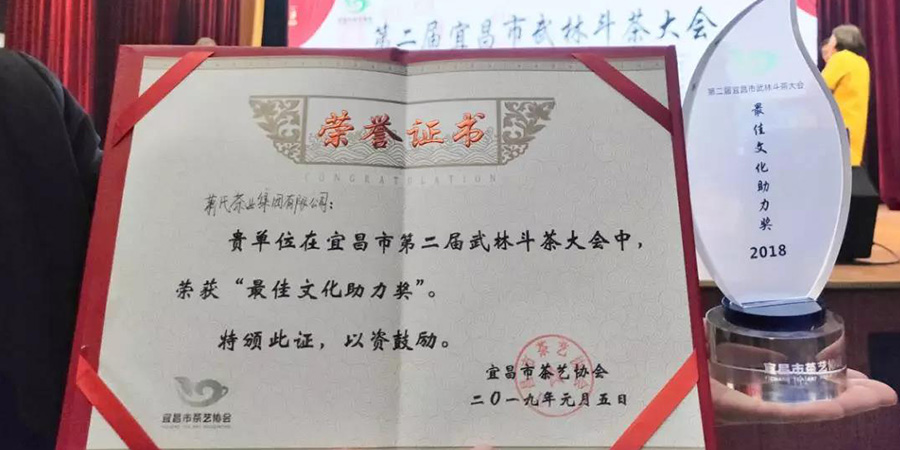 第二届宜昌市武林斗茶大会
荣誉证书
CONGRATULATION
蒋氏茶业集团有限公司：
贵单位在宜昌市第二届武林斗茶大会中，
荣获“最佳文化助力奖”。
特颁此证，以资鼓励。
宜昌市茶艺协会
二〇一九年元月五日
宜昌市茶艺协会
第二届宜昌市武林斗茶大会
最佳文化助力奖
2018
宜昌市茶艺协